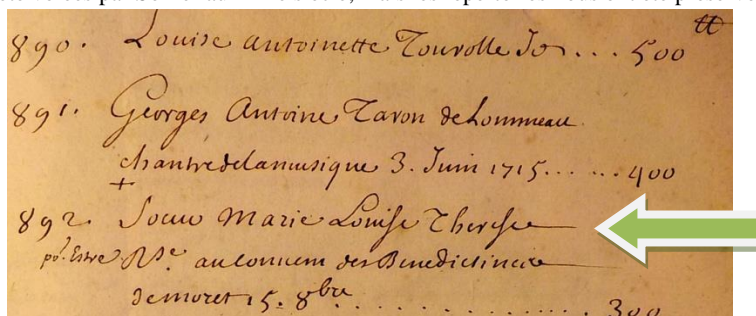 tt
890. Louise Antoinette Tourolle Id . . . 500
891. Georges Antoine Taron de Lommeau
chantre de la musique 3. Juin 1715 . . . . . . 400
+
892. Soeur Marie Louise Therese
po.r Estre R.se au Couvent des Benedictines
de moret 15. 8bre . . . . . . . . . . . . 300